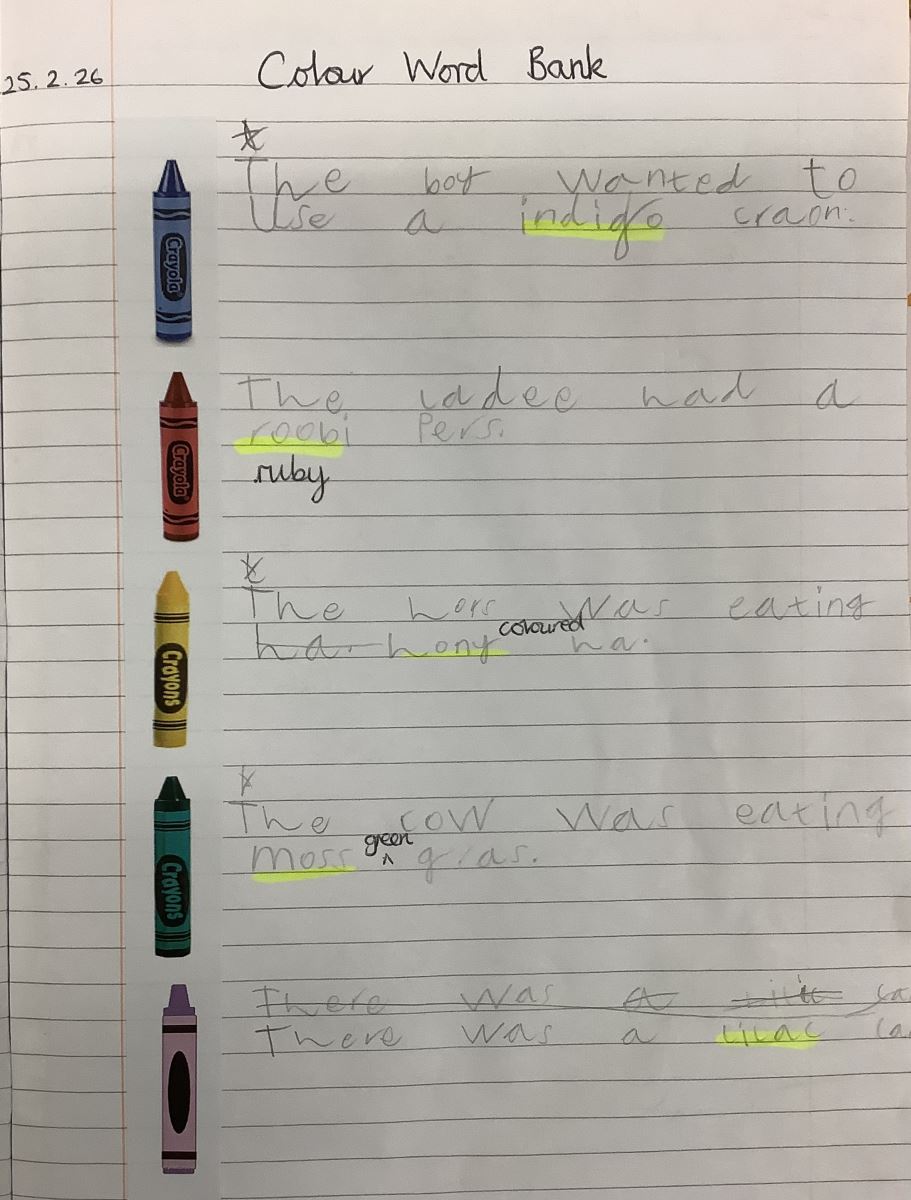 25.2.26
Colour Word Bank
The boy wanted to
Use a indigo craon.
Crayola
The ladee had a
roobi Pers.
ruby
Crayola
The hors was eating
coloured
ha hony ha.
Crayons
The cow was eating
green
moss gras.
Crayons
There was a
There was a lilac